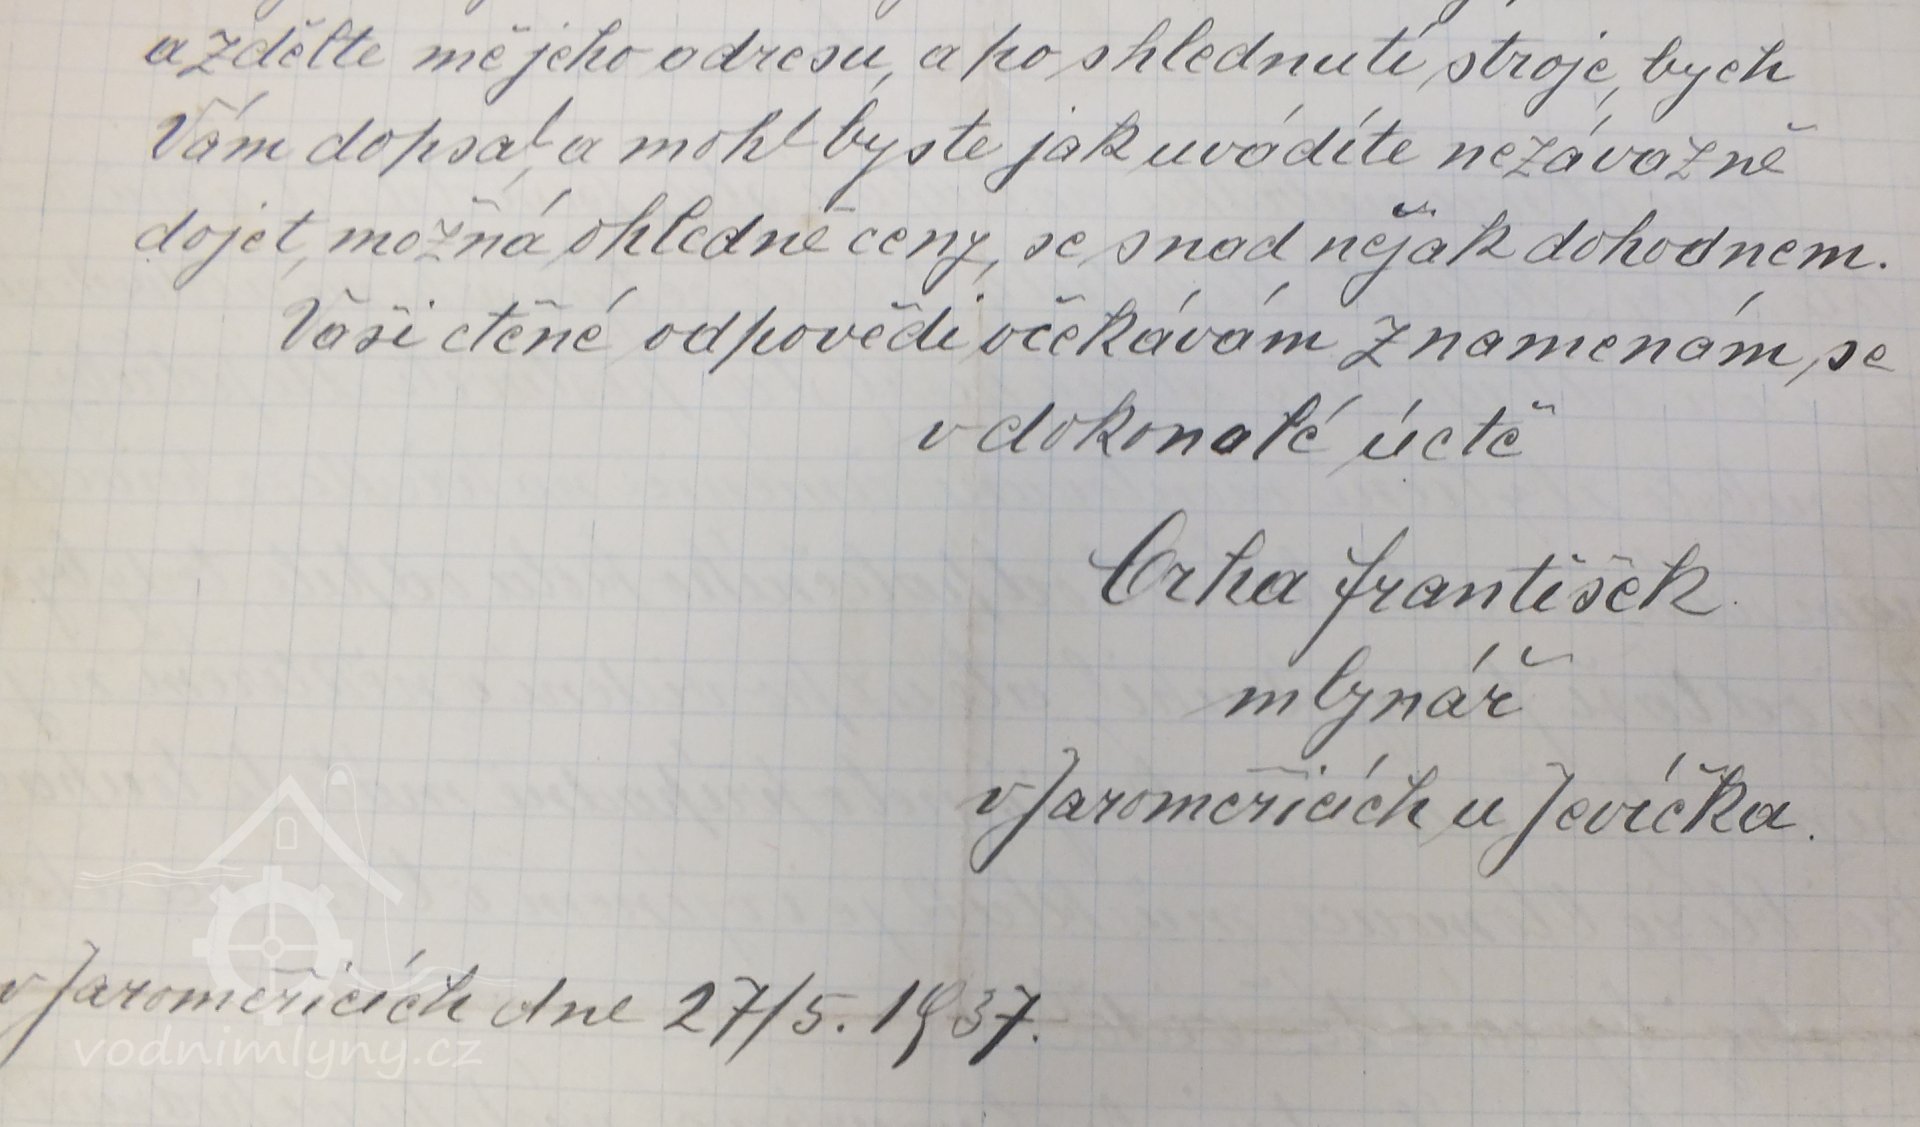 a zdělte mě jeho adresu, a po shlednutí stroje, bych
Vám dopsal, a mohl byste jak uvádíte nezávazně
dojet, možná ohledně ceny, se snad nějak dohodnem.
Vaši ctěné odpovědi očekávám znamenám se
v dokonalé úctě
Crha František.
mlynář
v Jaroměřicích u Jevíčka.
v Jaroměřicích dne 27/5. 1937.
vodnimlyny.cz